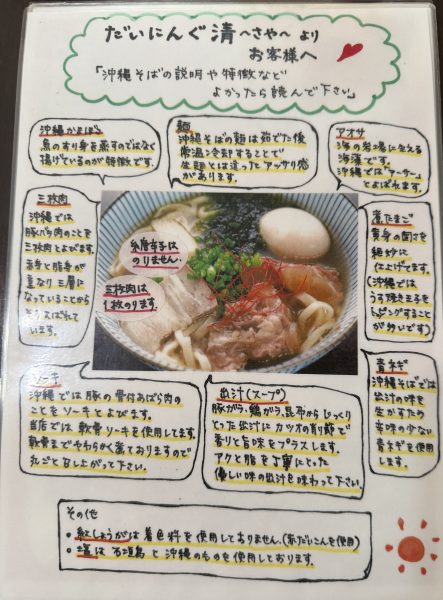 だいにんぐ清〜さや〜 より
お客様へ
「沖縄そばの説明や特徴など
よかったら読んで下さい」
沖縄かまぼこ
魚のすり身を蒸すのではなく
揚げているのが特徴です。
麺
沖縄そばの麺は茹でた後
常温冷却することで
生麺とは違ったアッサリ感
があります。
アオサ
海の岩場に生える
海藻です。
沖縄では「アーサー」
とよばれます
三枚肉
沖縄では
豚バラ肉のことを
三枚肉とよびます。
赤身と脂身が
重なり三層に
なっていることから
そうよばれて
います。
糸唐辛子は
のりません。
三枚肉は
1枚のります。
煮たまご
黄身の固さを
絶妙に
仕上げてます。
(沖縄では
うす焼き玉子を
トッピングすること
が多いです)
ソーキ
沖縄では豚の骨付あばら肉の
ことをソーキとよびます。
当店では軟骨ソーキを使用してます。
軟骨までやわらかく煮ておりますので
丸ごと召し上がって下さい。
出汁(スープ)
豚ガラ、鶏ガラ、昆布からじっくり
とった出汁にカツオの削り節で
香りと旨味をプラスします。
アクと脂を丁寧にとった
優しい味の出汁を味わって下さい。
青ネギ
沖縄そばでは
出汁の味を
生かすため
辛味の少ない
青ネギを使用
します。
その他
・紅しょうがは着色料を使用しておりません。(赤だいこんを使用)
・塩は石垣島と沖縄のものを使用しております。